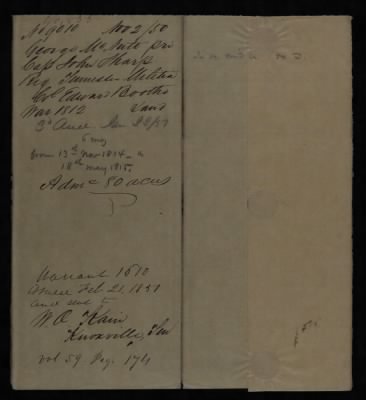 No 9010 Nov 2/50
George McPri
Capt John Sharp
Reg Tennessee Militia
Col Edwin Booths
War 1812
3d Aud Jan
6 mo
from 13th Nov 1814 - to
18th May 1815.
Admd 80 acres
Warrant 1610
Issued Feb 21, 1851
and sent to
W. A. Kain
Knoxville, Ten
Vol 59. Pag. 174